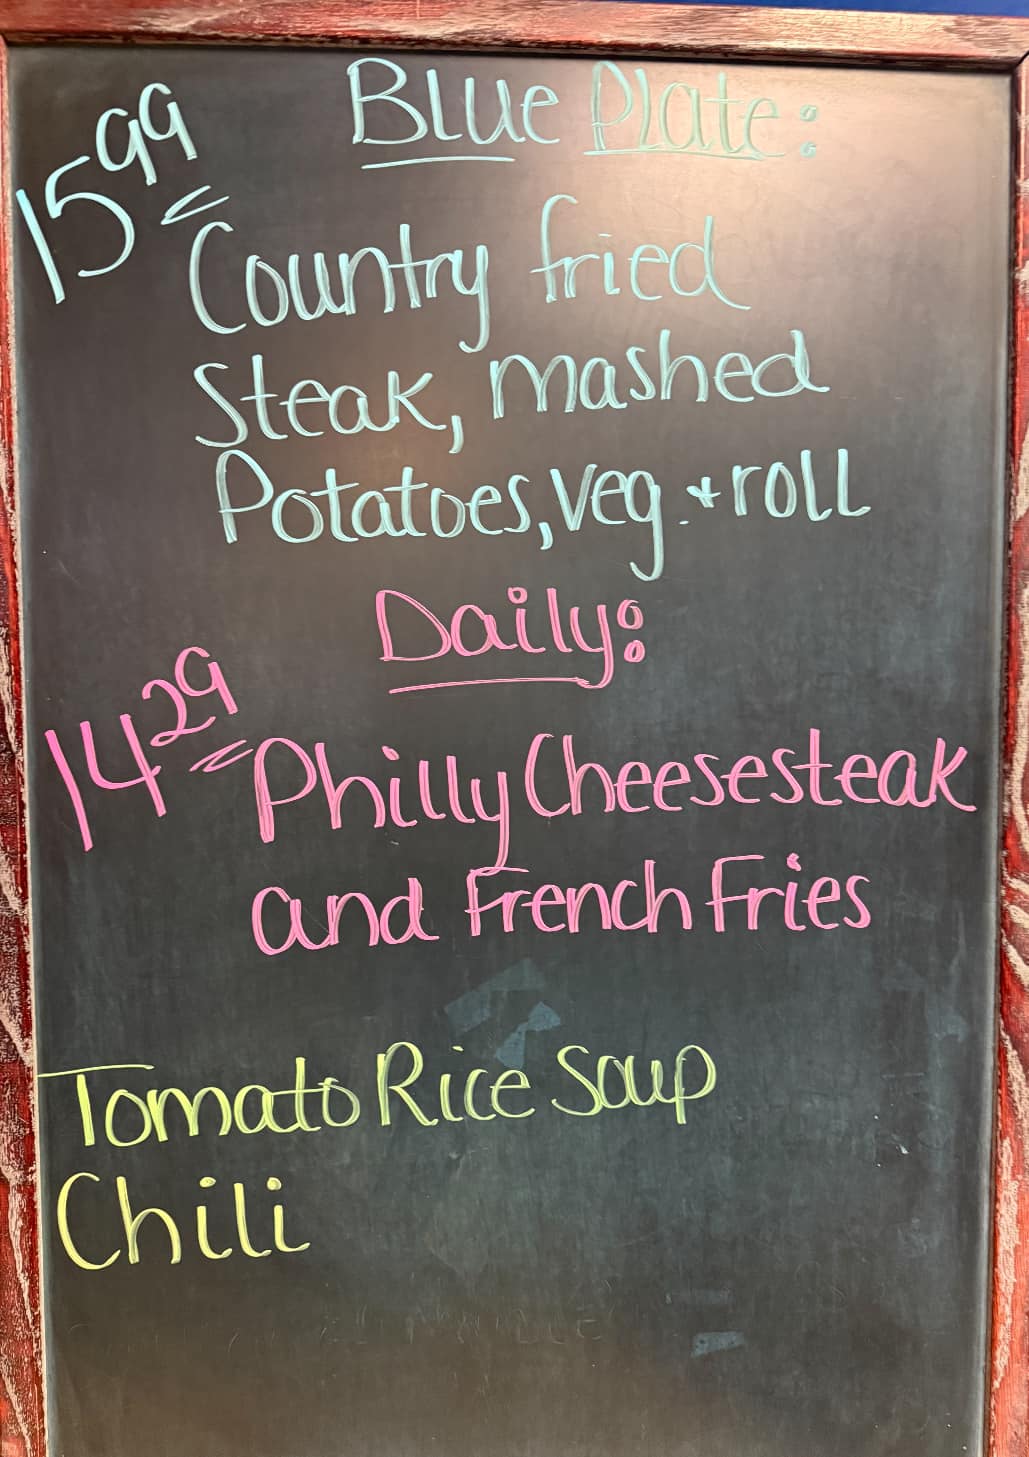 Blue Plate:
15 99
Country fried
Steak, mashed
Potatoes, veg. + roll
Daily:
14 29
Philly Cheesesteak
and French Fries
Tomato Rice Soup
Chili